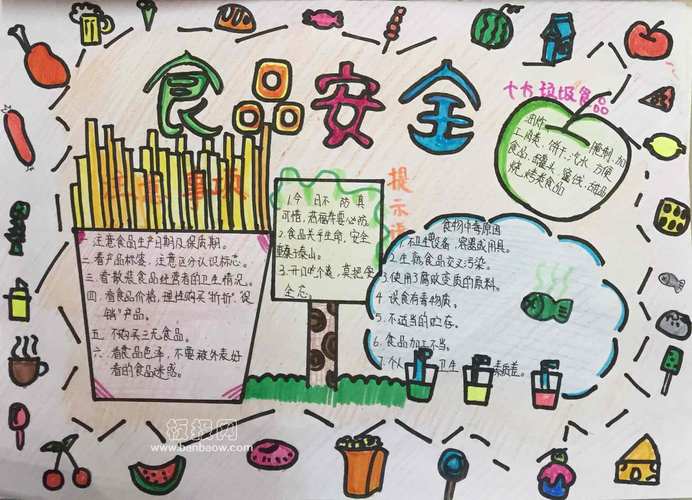 食品安全
十大垃圾食品
油炸 腌制.加
工肉类.饼干.汽水.方便
食品.罐头.蜜饯.甜品
烧.烤类食品
注意事项
一.注意食品生产日期及保质期。
二.看产品标签,注意区分认识标志。
三.看散装食品经营者的卫生情况。
四.看食品价格,理性购买"折折".促
销"产品。
五.不购买三无食品。
六.看食品色泽,不要被外表好
看的食品迷惑。
提示语
1.今日不防具
可惜,
2.食品关乎生命,安全
重于泰山。
3.开口吃个饭,莫把安
全忘。
食物中毒原因
1.不卫生设备.容器或用具。
2.生熟食品交叉污染。
3.使用了腐败变质的原料。
4.误食有毒物质。
5.不适当的贮存。
6.食品加工不当。
7.个人卫生素质差。
板报网
www.banbaow.com